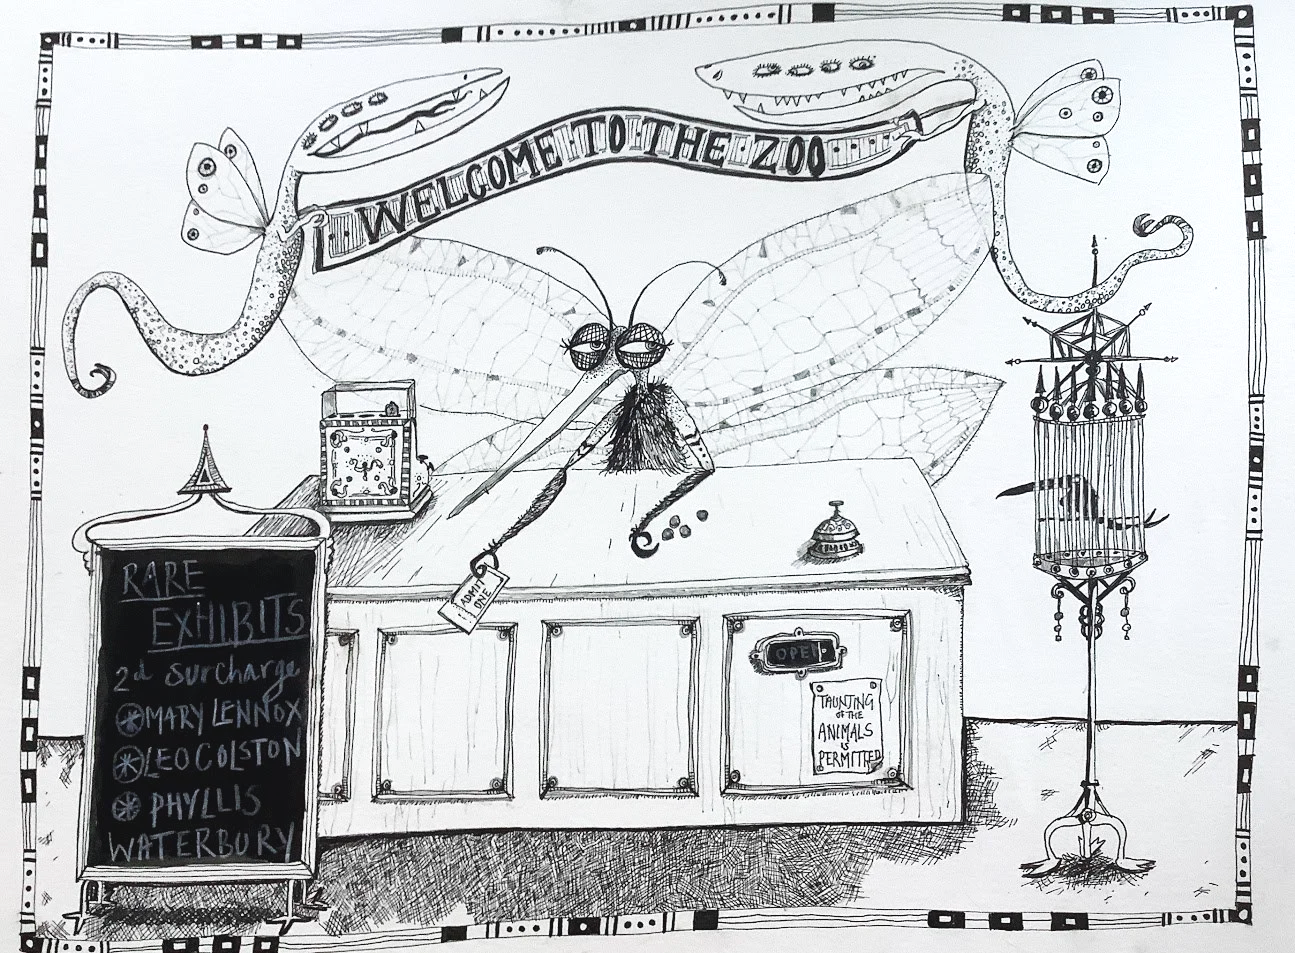 WELCOME·TO·THE·ZOO
RARE
EXHIBITS
2d surcharge
MARY LENNOX
LEO COLSTON
PHYLLIS
WATERBURY
ADMIT
ONE
OPEN
TAUNTING
OF THE
ANIMALS
IS
PERMITTED